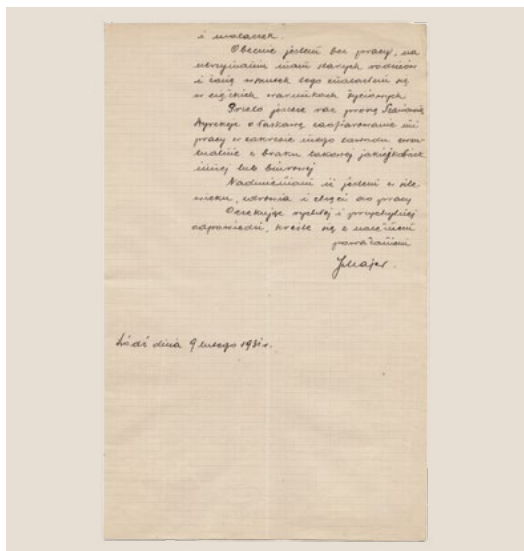 i
Obecnie jestem bez pracy, na
utrzymaniu mam starych rodziców
i żonę wskutek tego znalazłem się
w ciężkich warunkach życiowych
Przeto jeszcze raz proszę Szanowną
Dyrekcję o łaskawe zaofiarowanie mi
pracy w zakresie mego zawodu ewen-
tualnie z braku takowej jakiejkolwiek
innej lub biurowej
Nadmieniam iż jestem w sile
wieku, zdrowia i chęci do pracy
Oczekując rychłej i przychylnej
odpowiedzi, kreślę się z
poważaniem
JMajer.
Łódź dnia 9 lutego 1931 r.